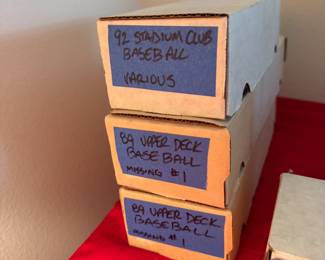 92 STADIUM CLUB
BASEBALL
VARIOUS
89 UPPER DECK
BASEBALL
MISSING #1
89 UPPER DECK
BASEBALL
MISSING #1